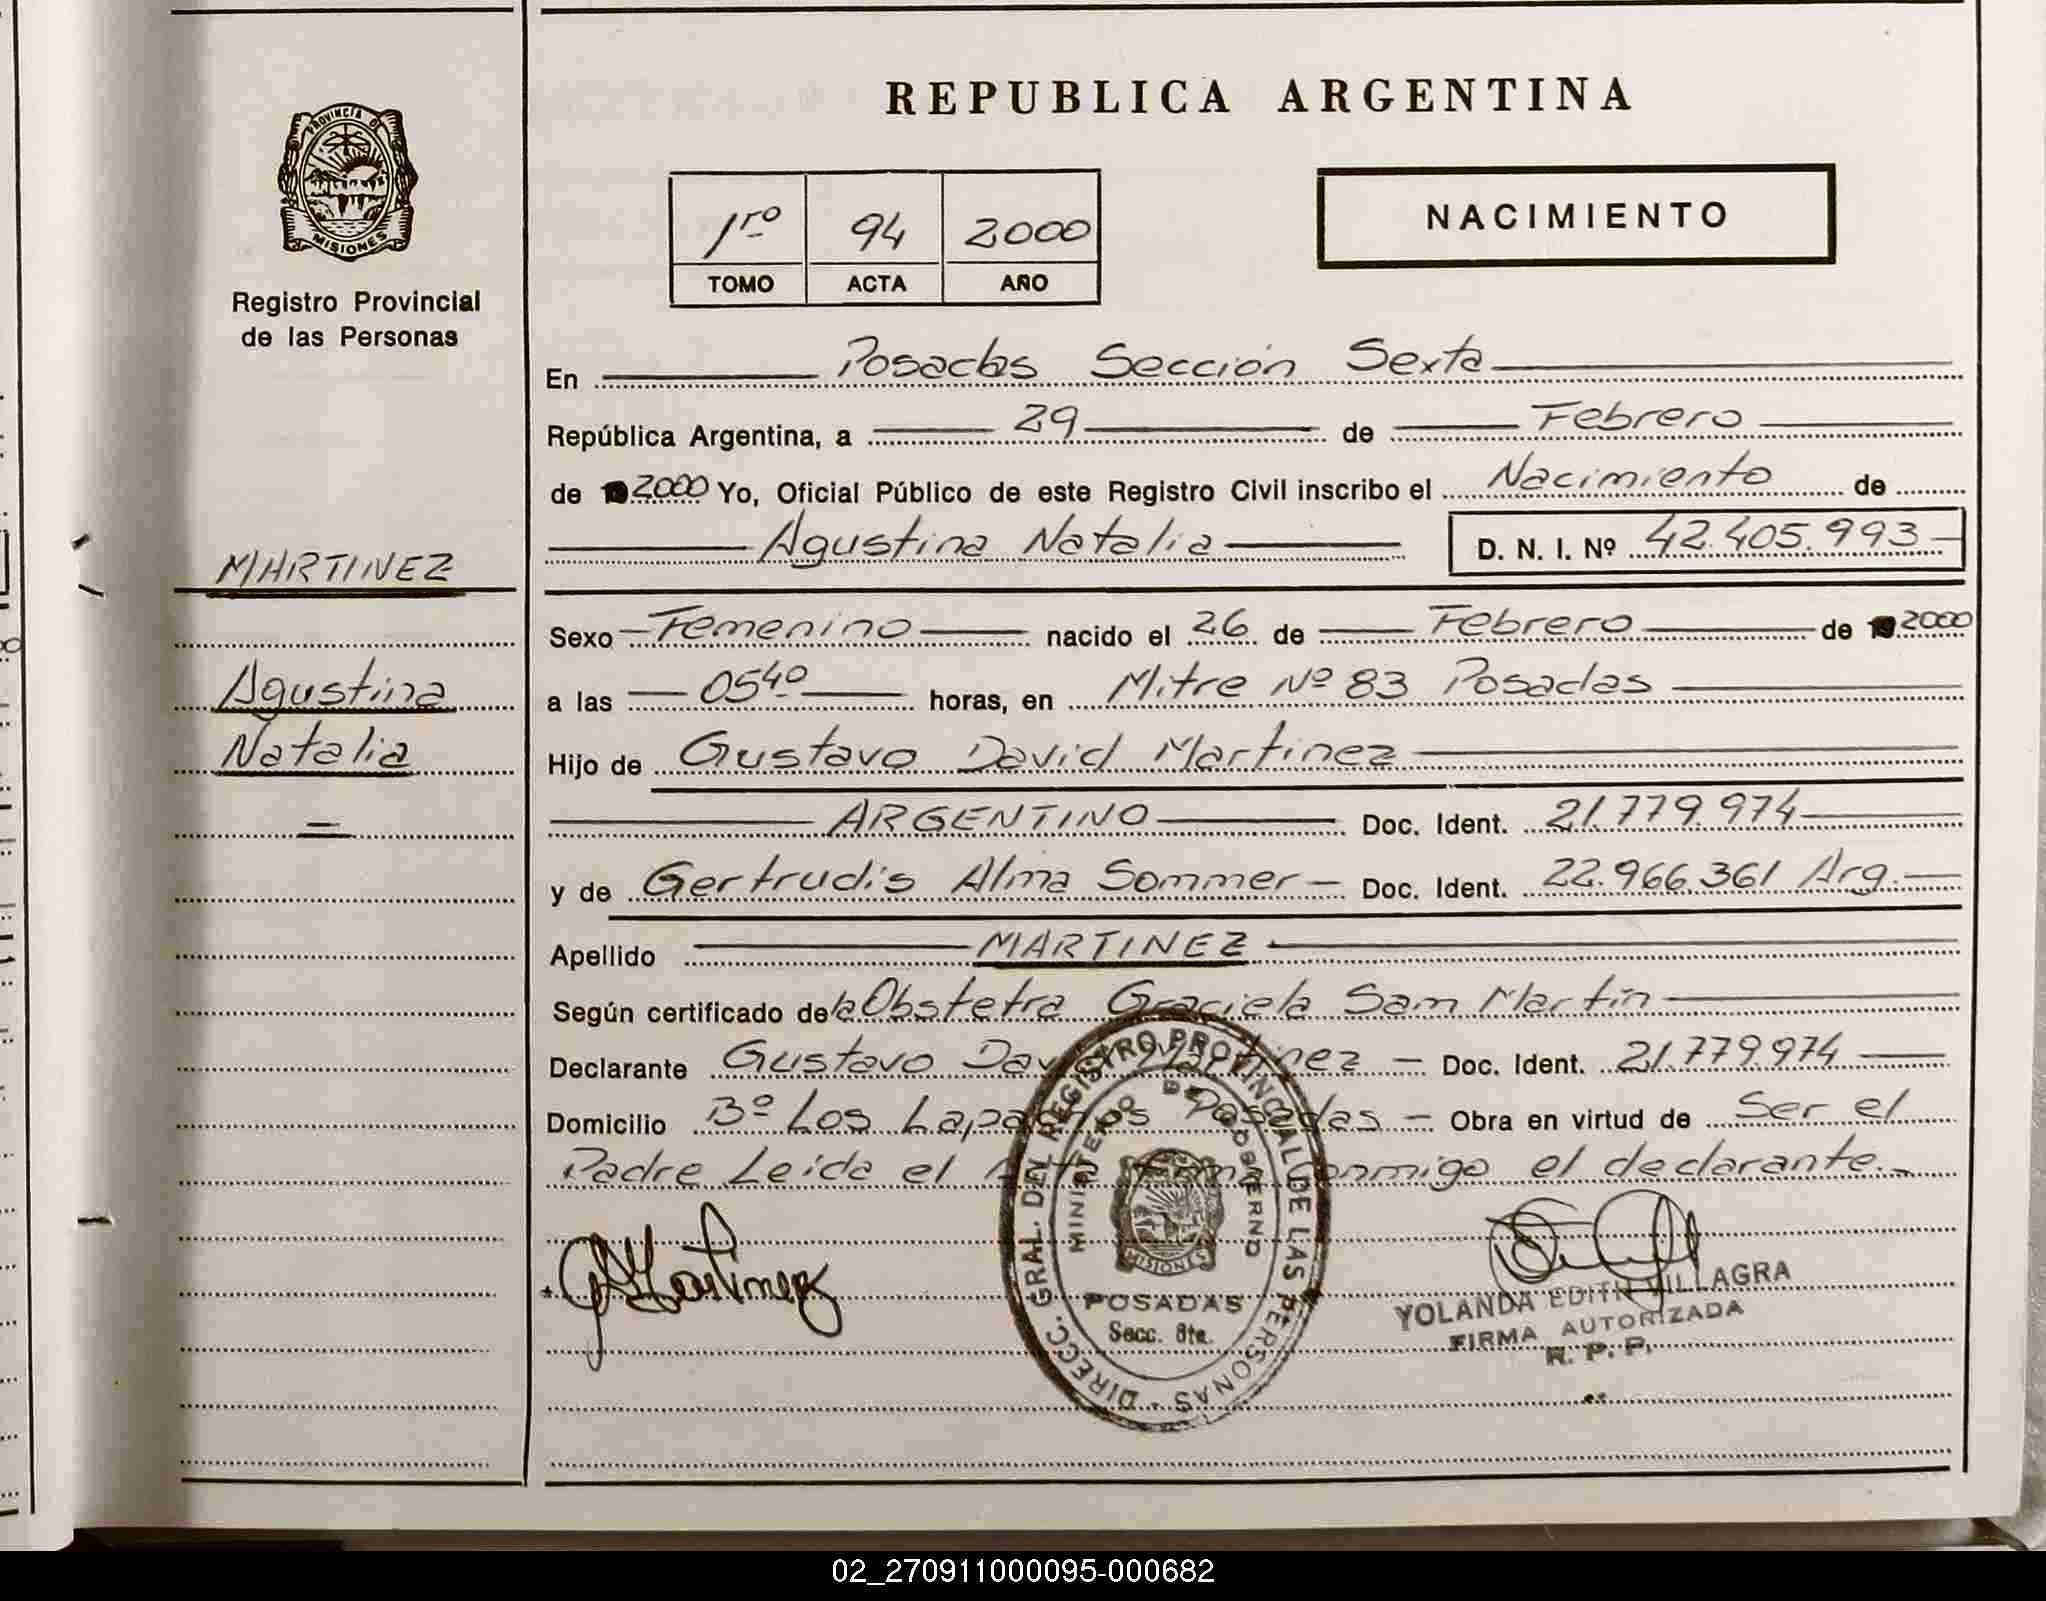 PROVINCIA DE
MISIONES
Registro Provincial
de las Personas
MARTINEZ
Agustina
Natalia
REPUBLICA ARGENTINA
1ro 94 2000
TOMO ACTA AÑO
NACIMIENTO
En Posadas Sección Sexta
República Argentina, a 29 de Febrero
de 2000 Yo, Oficial Público de este Registro Civil inscribo el Nacimiento de
Agustina Natalia D. N. I. Nº 42.405.993
Sexo Femenino nacido el 26 de Febrero de 2000
a las 05 40 horas, en Mitre Nº 83 Posadas
Hijo de Gustavo David Martinez
ARGENTINO Doc. Ident. 21.779.974
y de Gertrudis Alma Sommer Doc. Ident. 22.966.361 Arg.
Apellido MARTINEZ
Según certificado de la Obstetra Graciela Sam Martín
Declarante Gustavo David Martinez Doc. Ident. 21.779.974
Domicilio Bº Los Lapachos Posadas Obra en virtud de Ser el
Padre Leida el Acta firma conmigo el declarante.
DIRECC. GRAL. DEL REGISTRO PROVINCIAL DE LAS PERSONAS
MINISTERIO DE GOBIERNO
MISIONES
POSADAS
Secc. 6ta.
YOLANDA EDITH VILLAGRA
FIRMA AUTORIZADA
R. P. P.
02_270911000095-000682